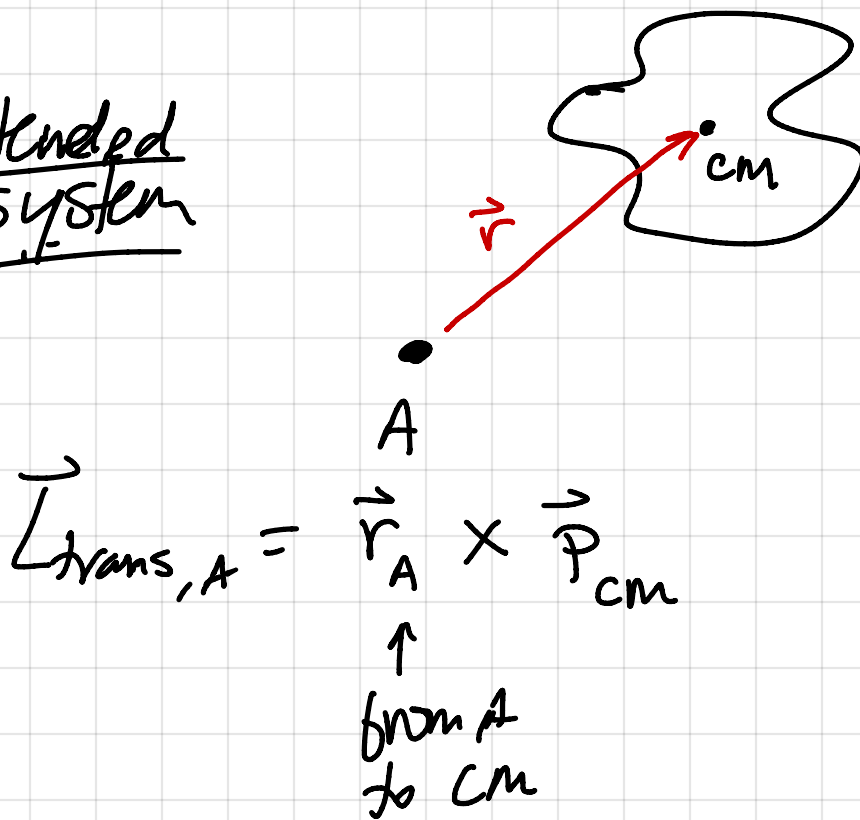 tended
system
cm
r⃗
A
L⃗trans,A = r⃗A × p⃗cm
↑
from A
to cm